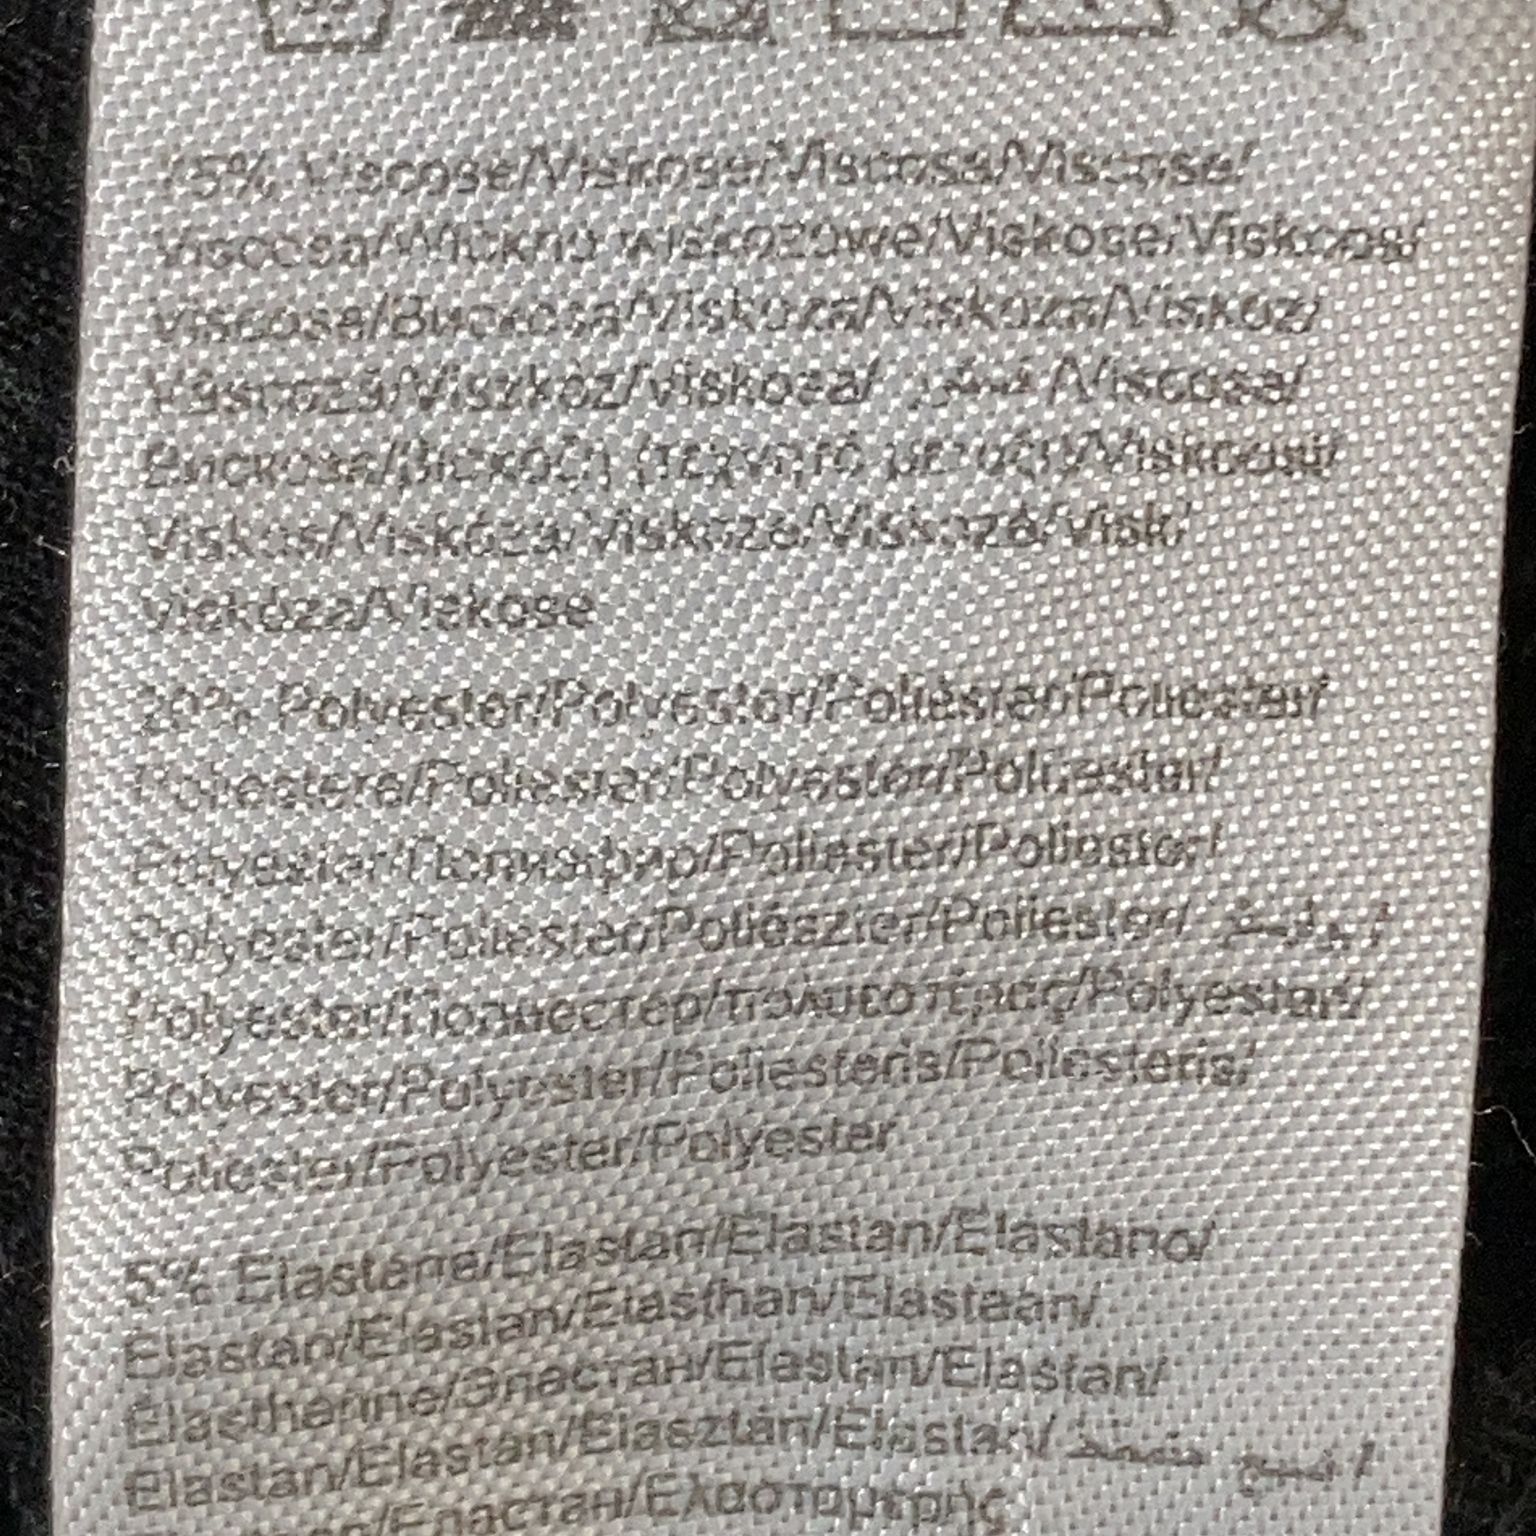 75% Viscose/Viskose/Viscosa/Viscose/
Viscosa/Włókno wiskozowe/Viskose/Viskoos/
viscose/Вискоза/Viskoza/Viskoza/Viskoz/
Vâscoză/Viszkóz/viskoza/ /Viscosa/
Вискозе/βισκόζη (τεχνητό μετάξι)/Viskoosi/
Viskos/Viskóza/Viskoze/Viskozė/Visk/
Viskóza/Viskose
20% Polyester/Polyester/Poliéster/Poliester/
Poliestere/Poliester/Polyester/Polüester/
Polyester/Полиэфир/Poliester/Poliester/
Polyester/Poliester/Poliészter/Poliester/
Polyester/Полиестер/πολυεστέρας/Polyesteri/
Polyester/Polyester/Poliesteris/Poliesteris/
Poliester/Polyester/Polyester
5% Elastane/Elastan/Elastan/Elastano/
Elastan/Elastan/Elasthan/Elastaan/
Elasthanne/Эластан/Elastan/Elastan/
Elastan/Elastan/Elasztán/Elastan/
/Еластан/Ελαστομερής